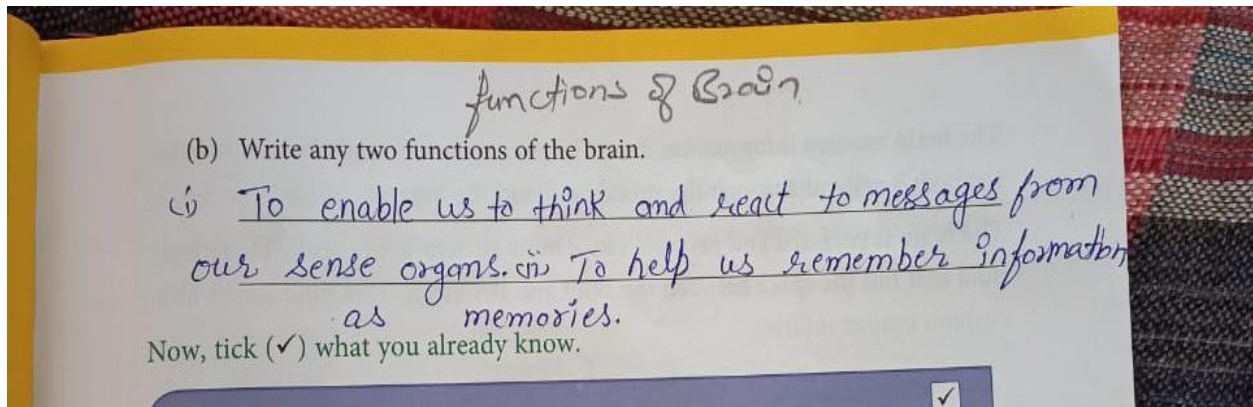 functions of Brain
(b) Write any two functions of the brain.
(i) To enable us to think and react to messages from
our sense organs. (ii) To help us remember information
as memories.
Now, tick (✓) what you already know.
✓